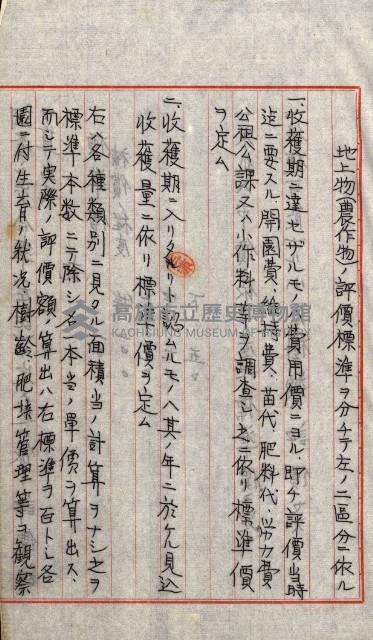 地上物(農作物)ノ評價標準ヲ分チテ左ノ二區分ニ依ル
一、收穫期ニ達セザルモノハ費用價ニヨル、即チ評價當時
迄ニ要スル開園費、維持費、苗代、肥料代、勞力費
公租公課又ハ小作料等ヲ調査シ之ニ依リ標準價
ヲ定ム
二、收穫期ニ入リタルリト認ムルモノハ其ノ年ニ於ケル見込
收穫量ニ依リ標準價ヲ定ム
右ハ各種類別ニ見タル面積當ノ計算ヲナシ之ヲ
標準本数ニテ除シ石一本當ノ單價ヲ算出ス、
而シテ実際ノ評價額算出ハ右標準ヲ百トシ各
園ニ付生育ノ狀況、樹齡、肥培管理等ヲ観察
高雄市立歷史博物館
KAOHSIUNG MUSEUM OF HISTORY